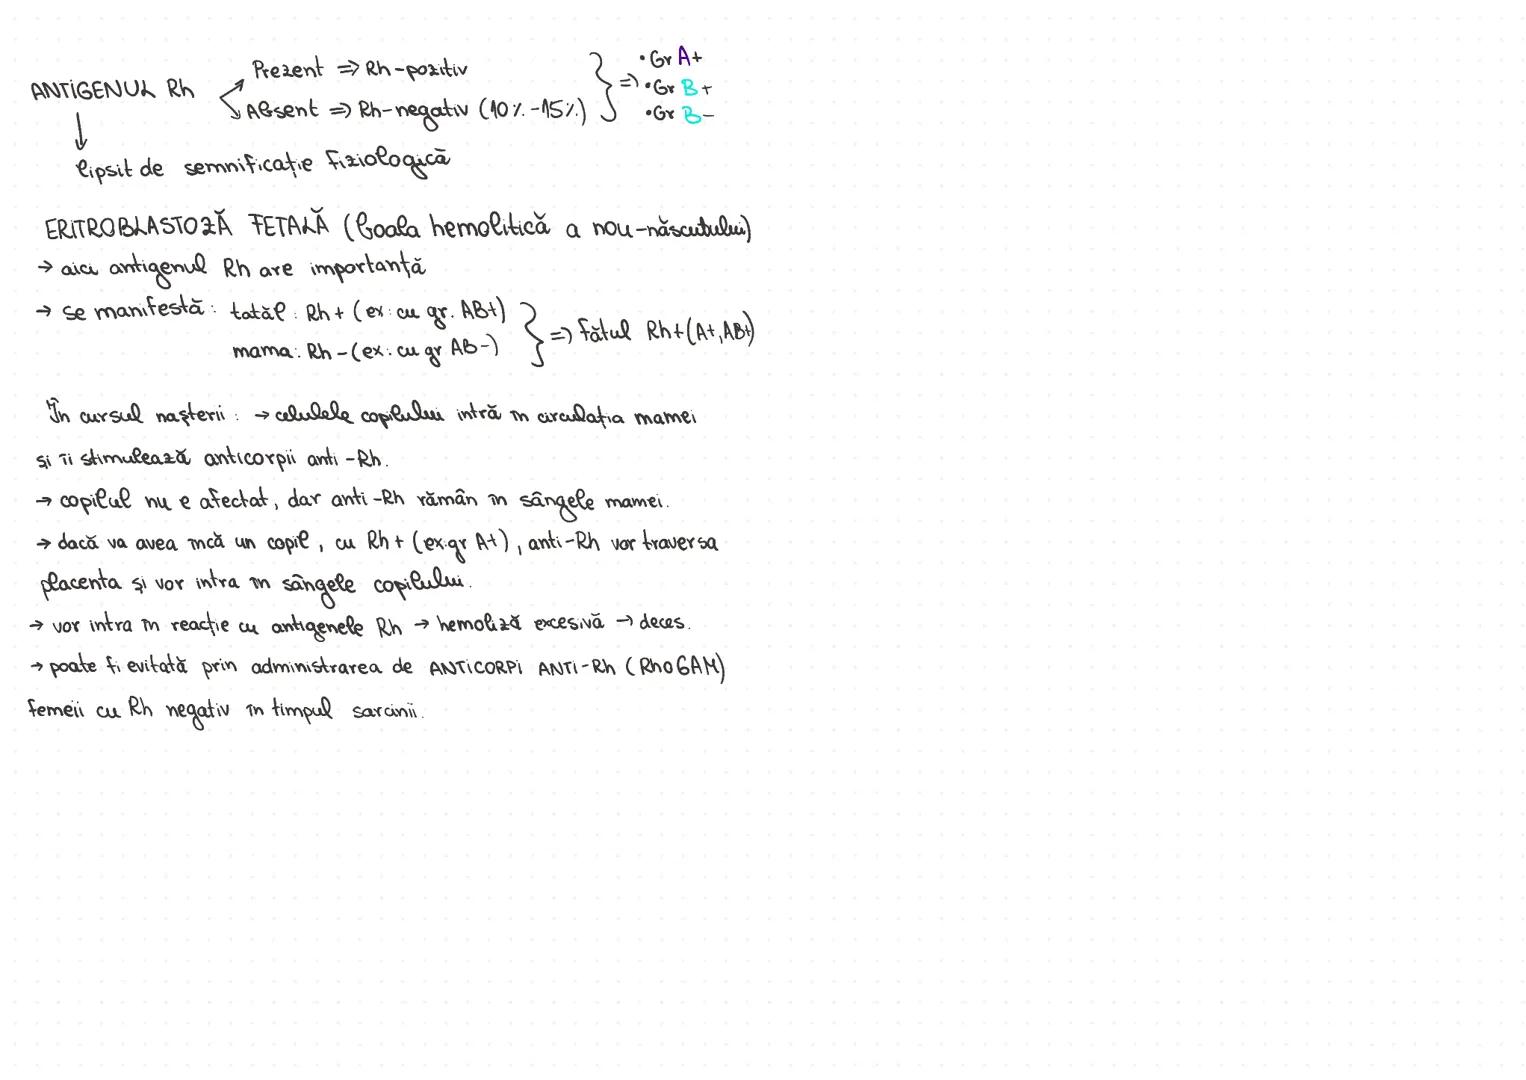 ANTIGENUL Rh
Prezent ⇒ Rh-pozitiv
Absent ⇒ Rh-negativ (10%-15%)
⇒ •Gr A+
•Gr B+
•Gr B-
↓
lipsit de semnificație fiziologică
ERITROBLASTOZĂ FETALĂ (boala hemolitică a nou-născutului)
→ aici antigenul Rh are importanță
→ se manifestă: tatăl: Rh+ (ex: cu gr. AB+)
mama: Rh-(ex: cu gr AB-)
⇒ fătul Rh+(A+,AB+)
În cursul nașterii: → celulele copilului intră în circulația mamei
și îi stimulează anticorpii anti-Rh.
→ copilul nu e afectat, dar anti-Rh rămân în sângele mamei.
→ dacă va avea încă un copil, cu Rh+ (ex.gr A+), anti-Rh vor traversa
placenta și vor intra în sângele copilului.
→ vor intra în reacție cu antigenele Rh → hemoliză excesivă → deces.
→ poate fi evitată prin administrarea de ANTICORPI ANTI-Rh (RhoGAM)
femeii cu Rh negativ în timpul sarcinii.